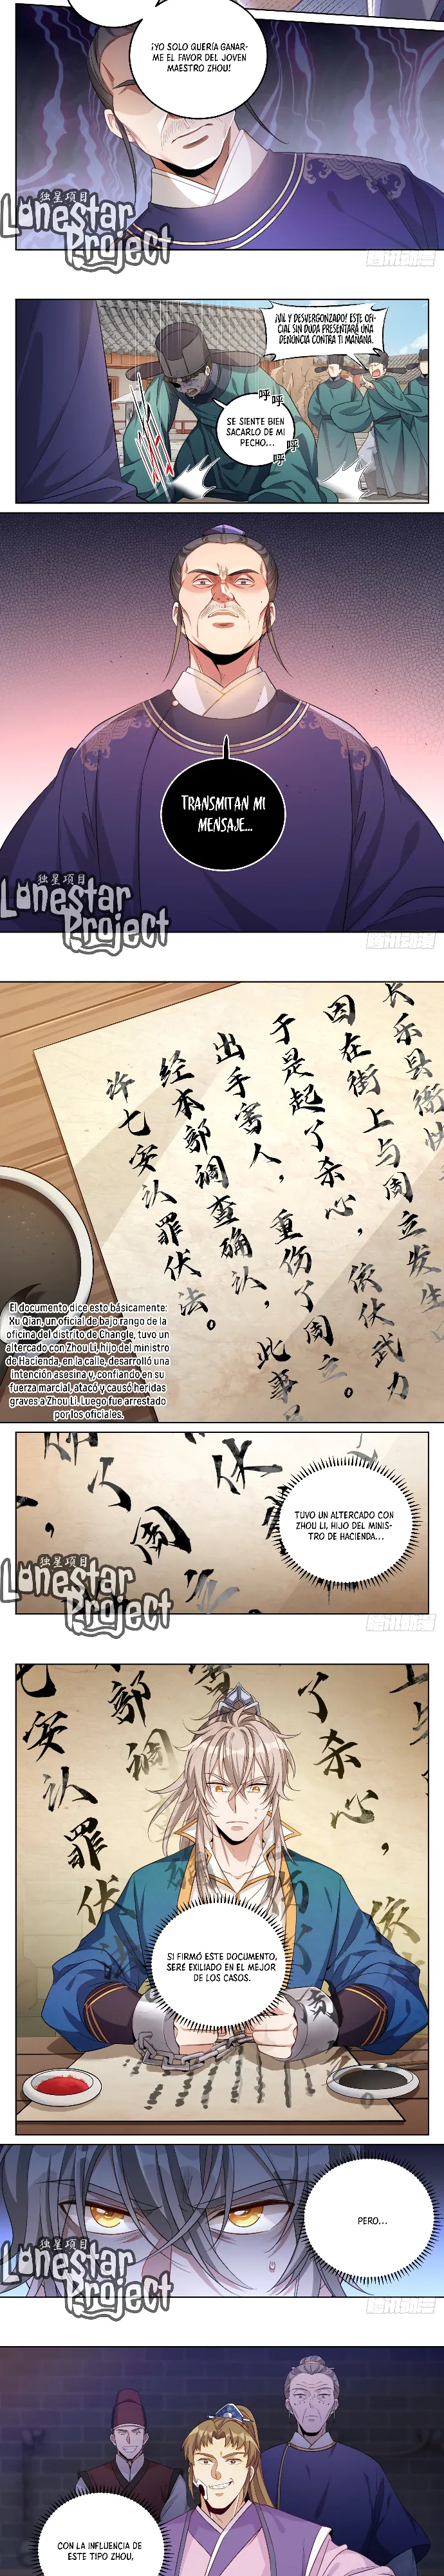 ¡YO SOLO QUERÍA GANAR-
ME EL FAVOR DEL JOVEN
MAESTRO ZHOU!
独星項目
Lonestar
Project
¡VIL Y DESVERGONZADO! ESTE OFI-
CIAL SIN DUDA PRESENTARÁ UNA
DENUNCIA CONTRA TI MAÑANA.
呼
呼
SE SIENTE BIEN
SACARLO DE MI
PECHO...
呼
呼
TRANSMITAN MI
MENSAJE...
独星項目
Lonestar
Project
长乐县衙快
因在街上与周立发生
于是起了杀心，依仗武力
出手害人，重伤了周立。
经本部调查确认，此事
许七安认罪伏法。
El documento dice esto básicamente:
Xu Qian, un oficial de bajo rango de la
oficina del distrito de Changle, tuvo un
altercado con Zhou Li, hijo del ministro
de Hacienda, en la calle, desarrolló una
intención asesina y, confiando en su
fuerza marcial, atacó y causó heridas
graves a Zhou Li. Luego fue arrestado
por los oficiales.
TUVO UN ALTERCADO CON
ZHOU LI, HIJO DEL MINIS-
TRO DE HACIENDA...
独星項目
Lonestar
Project
七安认罪伏
部调
了杀心，
依
SI FIRMÓ ESTE DOCUMENTO,
SERÉ EXILIADO EN EL MEJOR
DE LOS CASOS.
PERO...
独星項目
Lonestar
Project
CON LA INFLUENCIA DE
ESTE TIPO ZHOU,